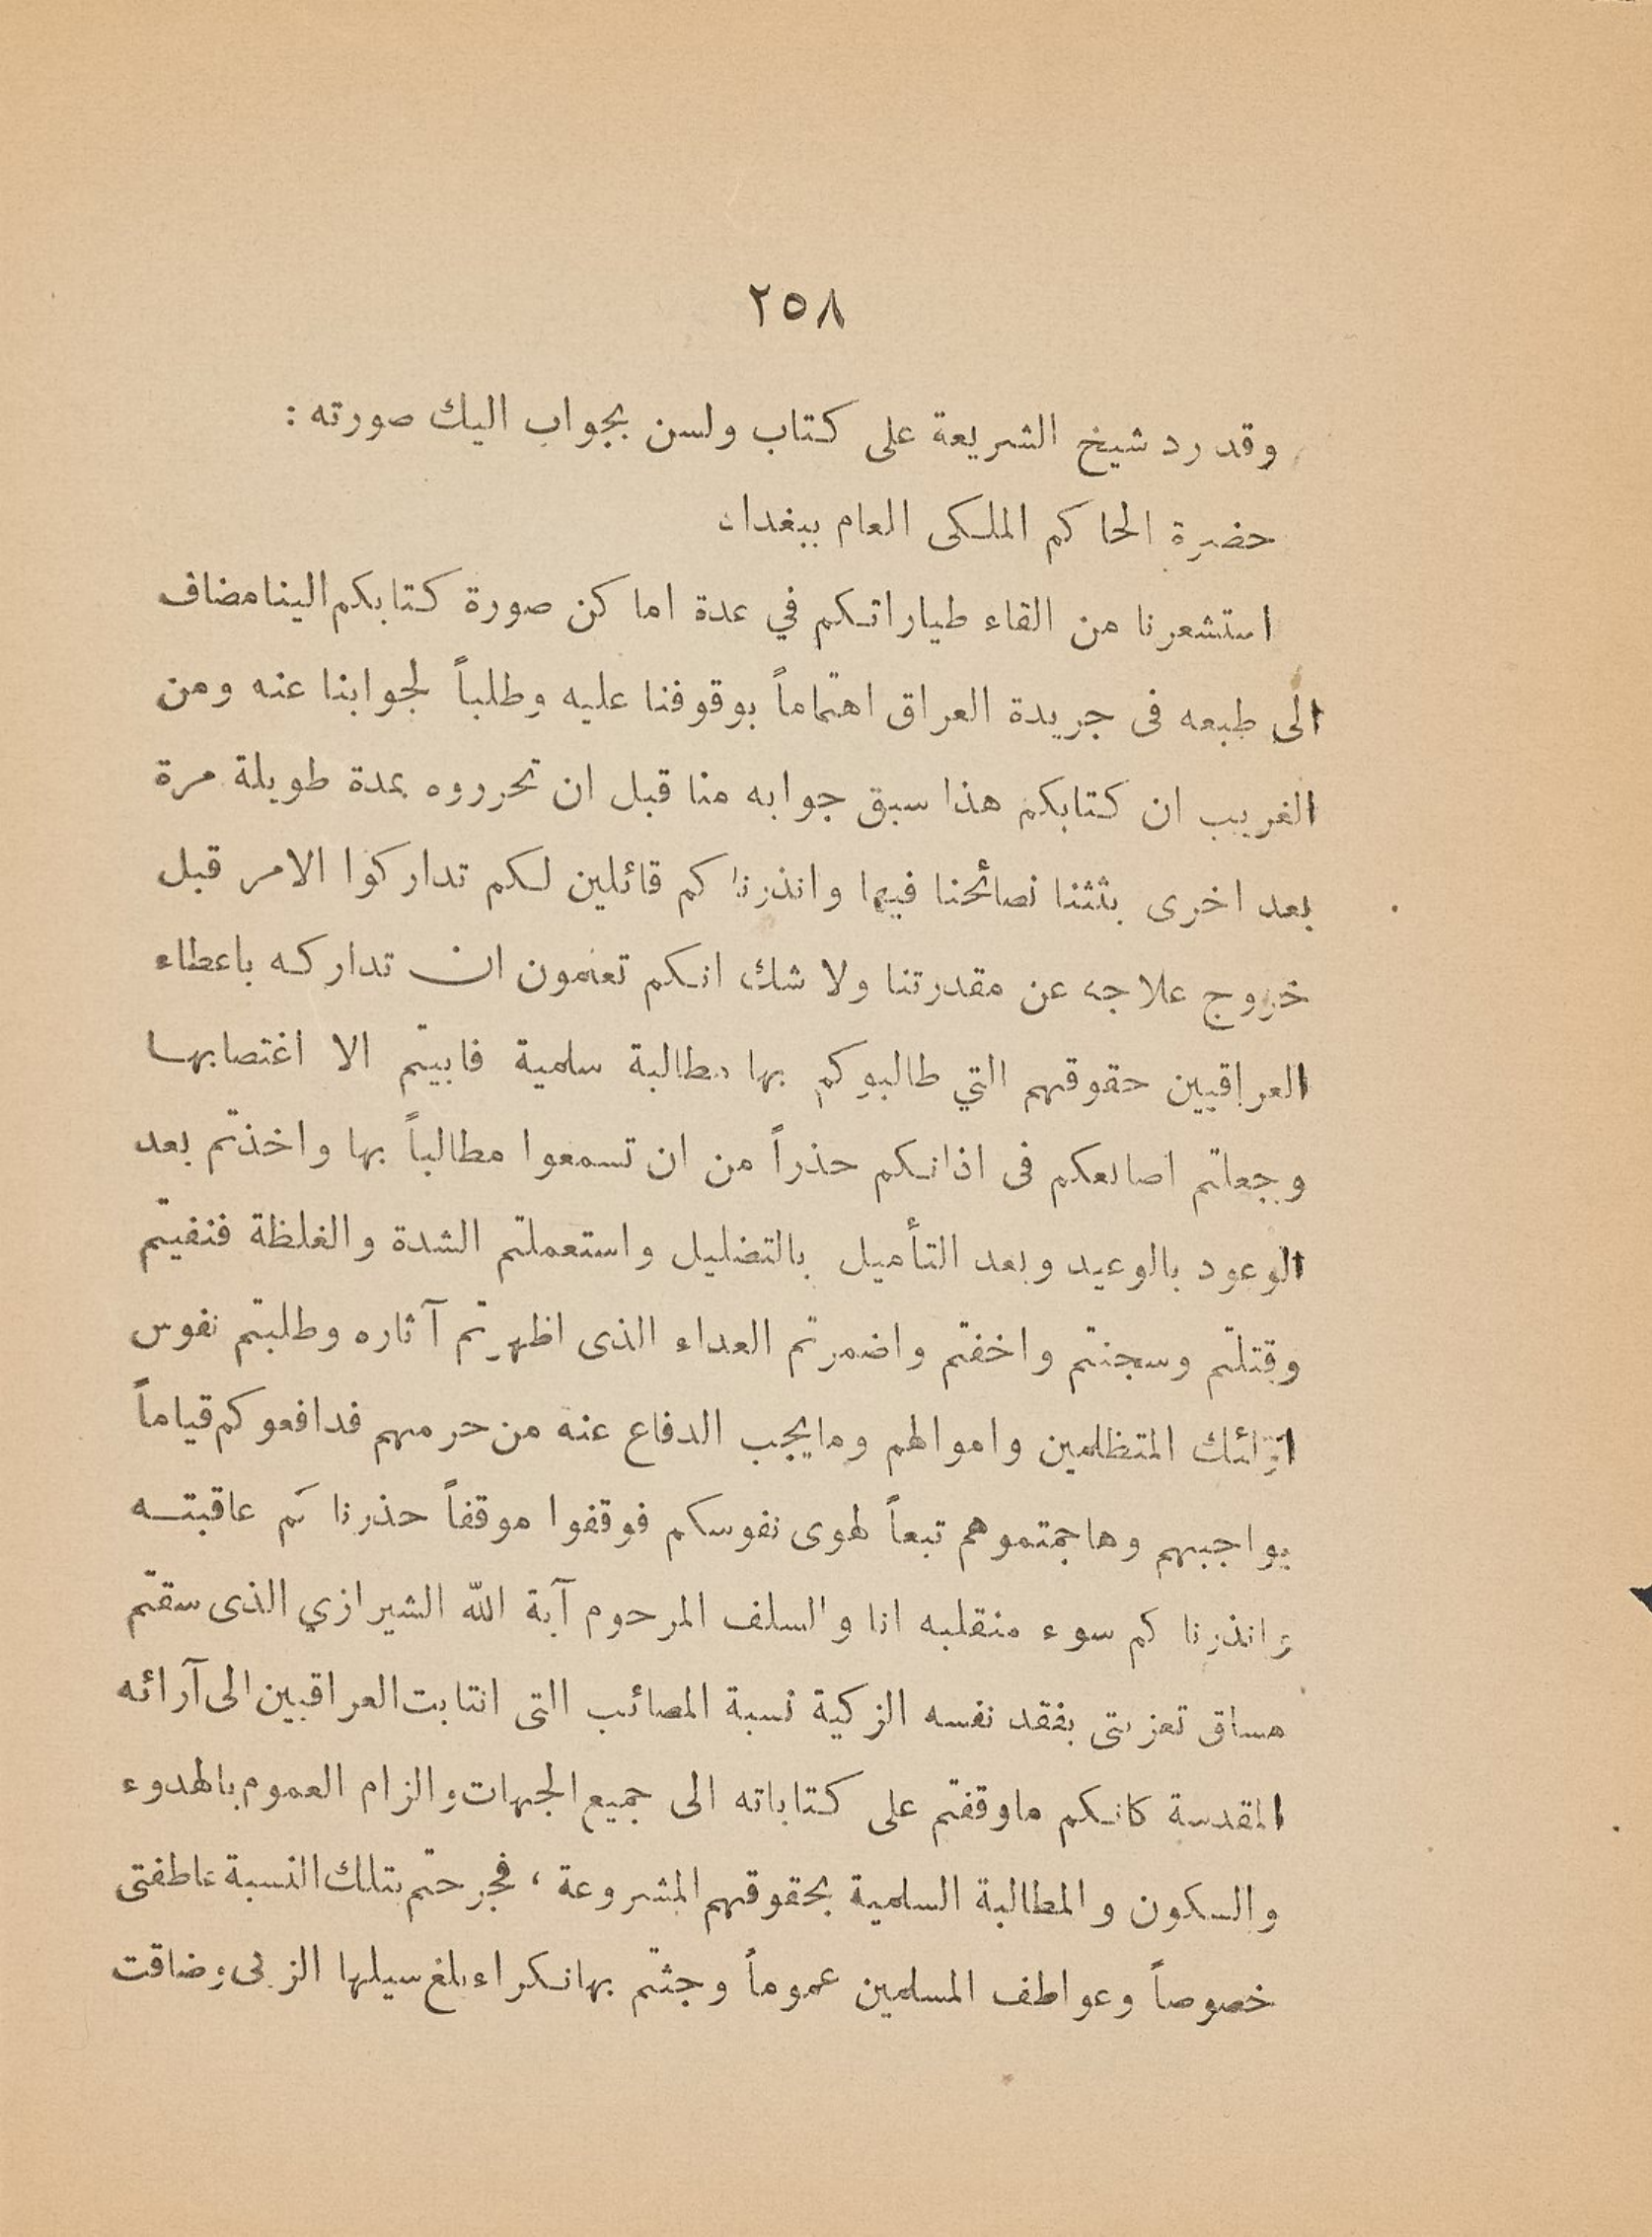 ٢٥٨
وقد رد شيخ الشريعة على كتاب ولسن بجواب اليك صورته :
حضرة الحاكم الملكى العام ببغداد
استشعرنا من القاء طياراتكم في عدة اماكن صورة كتابكم الينا مضاف
الى طبعه فى جريدة العراق اهتماماً بوقوفنا عليه وطلباً لجوابنا عنه ومن
الغريب ان كتابكم هذا سبق جوابه منا قبل ان تحرروه بمدة طويلة مرة
بعد اخرى بثثنا نصائحنا فيها وانذرناكم قائلين لكم تداركوا الامر قبل
خروج علاجه عن مقدرتنا ولا شك انكم تعلمون ان تداركه باعطاء
العراقيين حقوقهم التي طالبوكم بها مطالبة سلمية فابيتم الا اغتصابها
وجعلتم اصابعكم فى اذانكم حذراً من ان تسمعوا مطالباً بها واخذتم بعد
الوعود بالوعيد وبعد التأميل بالتضليل واستعملتم الشدة والغلظة فنفيتم
وقتلتم وسجنتم واخفتم واضمرتم العداء الذى اظهرتم آثاره وطلبتم نفوس
اولئك المتظلمين واموالهم وما يجب الدفاع عنه من حرمهم فدافعوكم قياماً
بواجبهم وهاجمتموهم تبعاً لهوى نفوسكم فوقفوا موقفاً حذرناكم عاقبته
وانذرناكم سوء منقلبه انا والسلف المرحوم آية الله الشيرازي الذى سقتم
مساق تعزيتى بفقد نفسه الزكية نسبة المصائب التى انتابت العراقيين الى آرائه
المقدسة كانكم ما وقفتم على كتاباته الى جميع الجهات والزام العموم بالهدوء
والسكون والمطالبة السلمية بحقوقهم المشروعة ، فجرحتم بتلك النسبة عاطفتى
خصوصاً وعواطف المسلمين عموماً وجئتم بها نكراء بلغ سيلها الزبى وضاقت